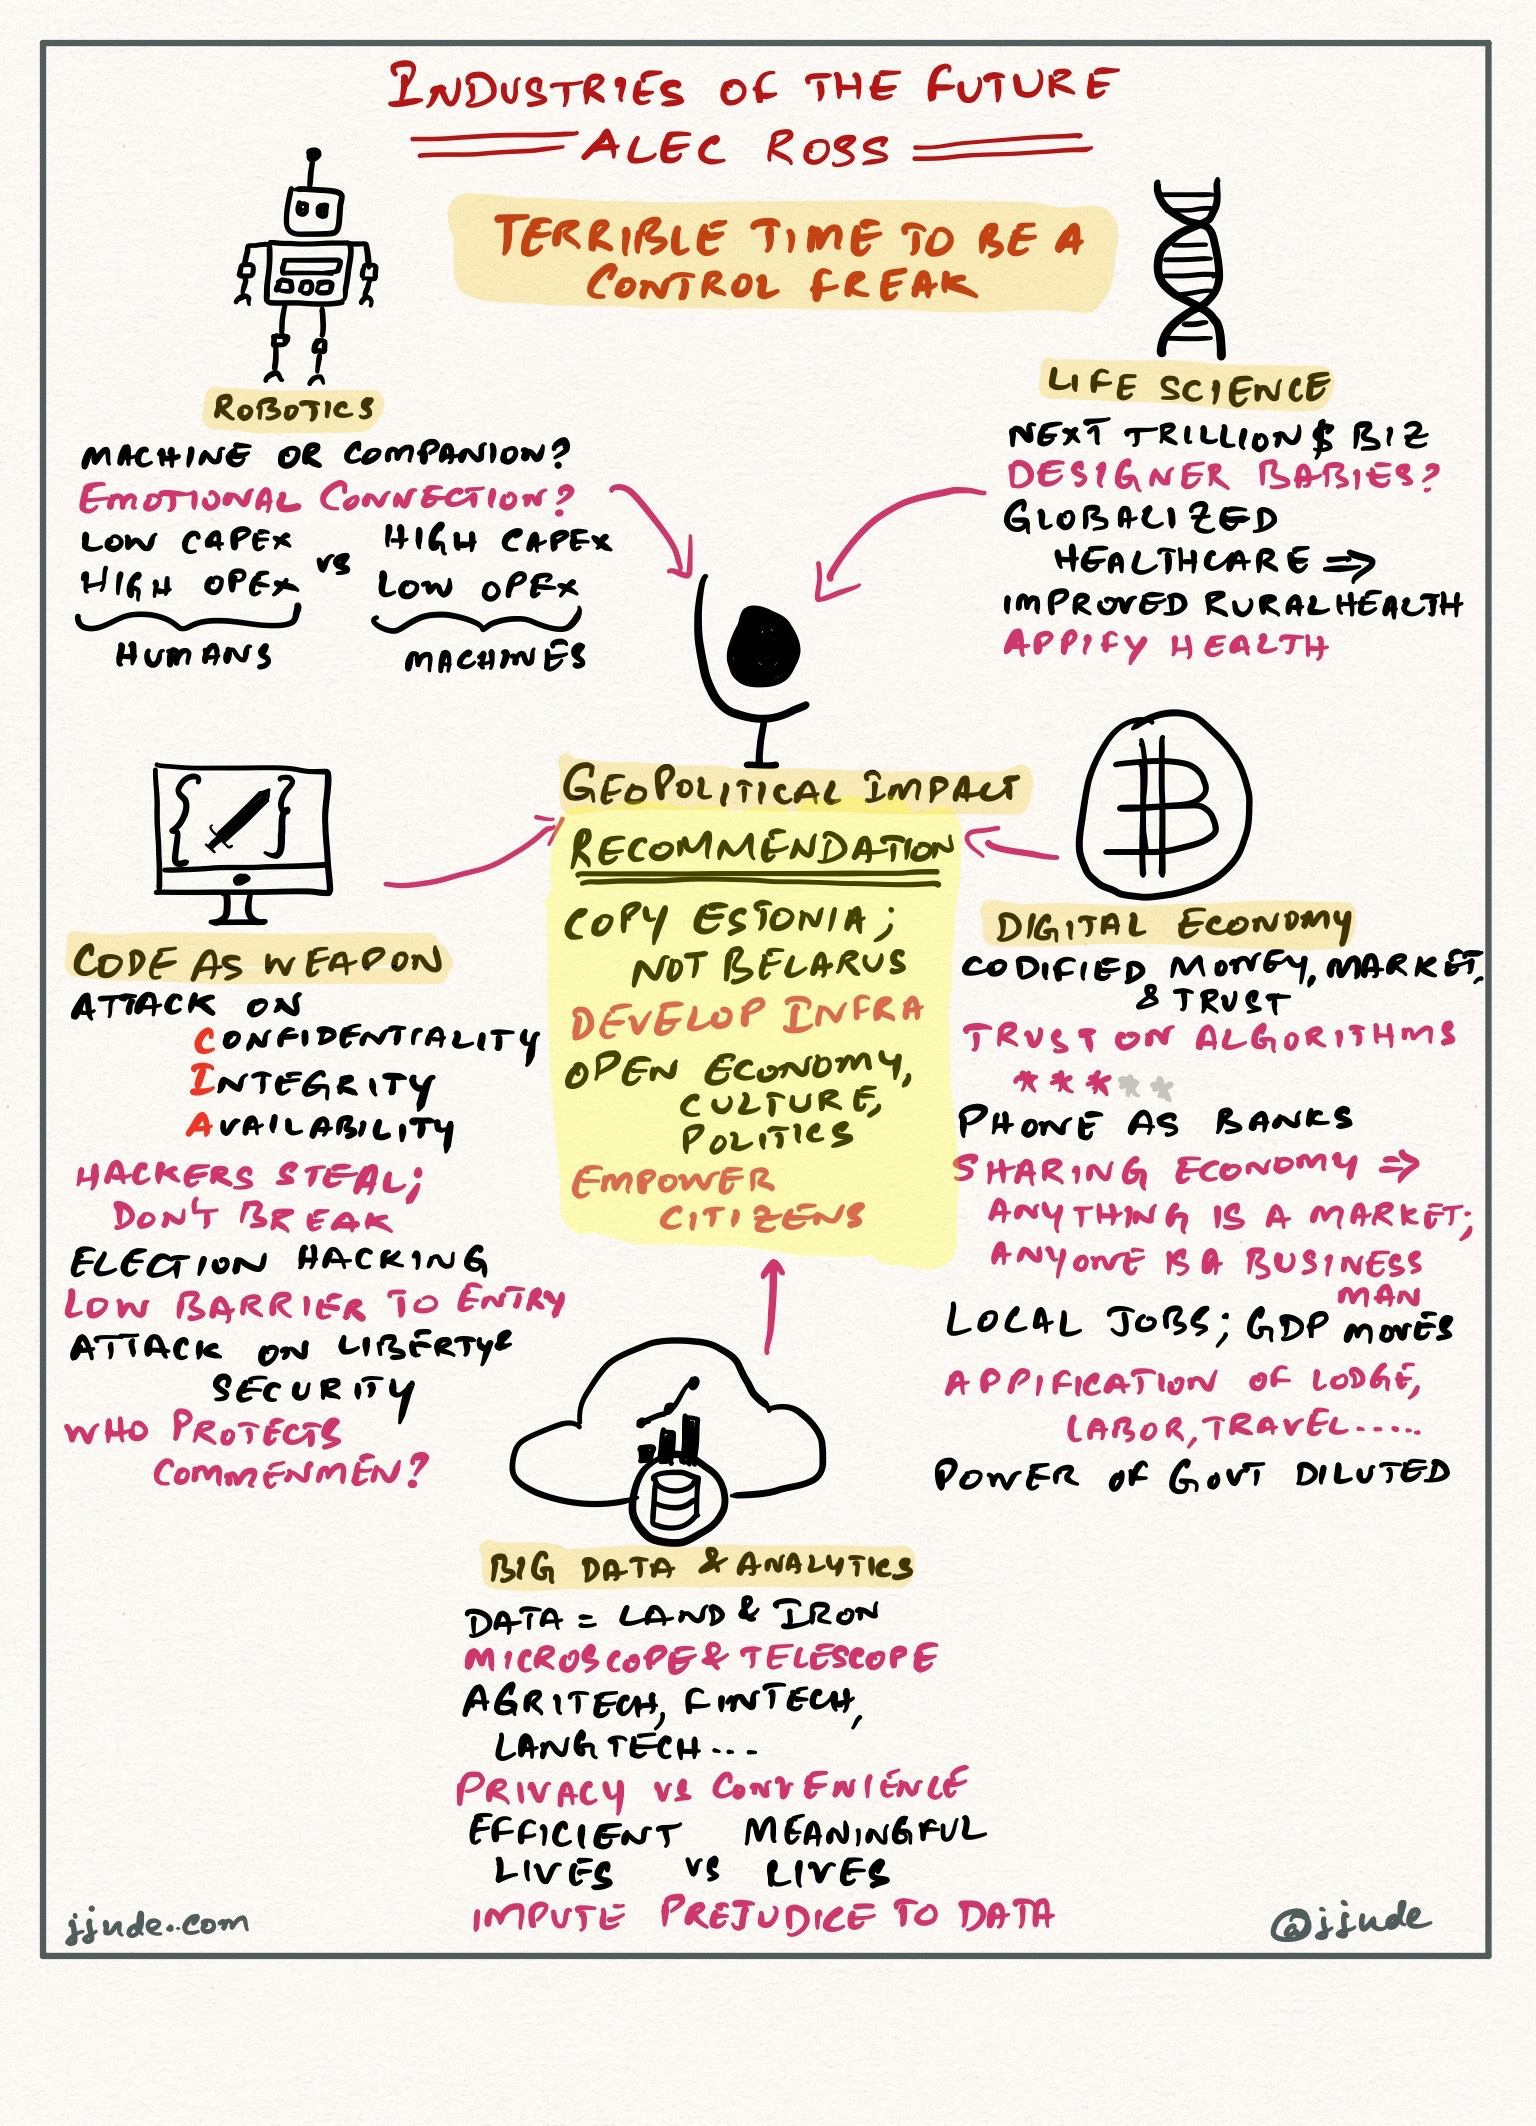 INDUSTRIES OF THE FUTURE
ALEC ROSS
TERRIBLE TIME TO BE A
CONTROL FREAK
ROBOTICS
MACHINE OR COMPANION?
EMOTIONAL CONNECTION?
LOW CAPEX
HIGH OPEX
vs
HIGH CAPEX
LOW OPEX
HUMANS
MACHINES
LIFE SCIENCE
NEXT TRILLION $ BIZ
DESIGNER BABIES?
GLOBALIZED
HEALTHCARE ⇒
IMPROVED RURAL HEALTH
APPIFY HEALTH
CODE AS WEAPON
ATTACK ON
CONFIDENTIALITY
INTEGRITY
AVAILABILITY
HACKERS STEAL;
DON'T BREAK
ELECTION HACKING
LOW BARRIER TO ENTRY
ATTACK ON LIBERTY &
SECURITY
WHO PROTECTS
COMMENMEN?
GEOPOLITICAL IMPACT
RECOMMENDATION
COPY ESTONIA;
NOT BELARUS
DEVELOP INFRA
OPEN ECONOMY,
CULTURE,
POLITICS
EMPOWER
CITIZENS
DIGITAL ECONOMY
CODIFIED MONEY, MARKET,
& TRUST
TRUST ON ALGORITHMS
* * * * *
PHONE AS BANKS
SHARING ECONOMY ⇒
ANYTHING IS A MARKET;
ANYONE IS A BUSINESS
MAN
LOCAL JOBS; GDP MOVES
APPIFICATION OF LODGE,
LABOR, TRAVEL.....
POWER OF GOVT DILUTED
BIG DATA & ANALYTICS
DATA = LAND & IRON
MICROSCOPE & TELESCOPE
AGRITECH, FINTECH,
LANGTECH...
PRIVACY vs CONVENIENCE
EFFICIENT MEANINGFUL
LIVES vs LIVES
IMPUTE PREJUDICE TO DATA
jjude.com
@jjude